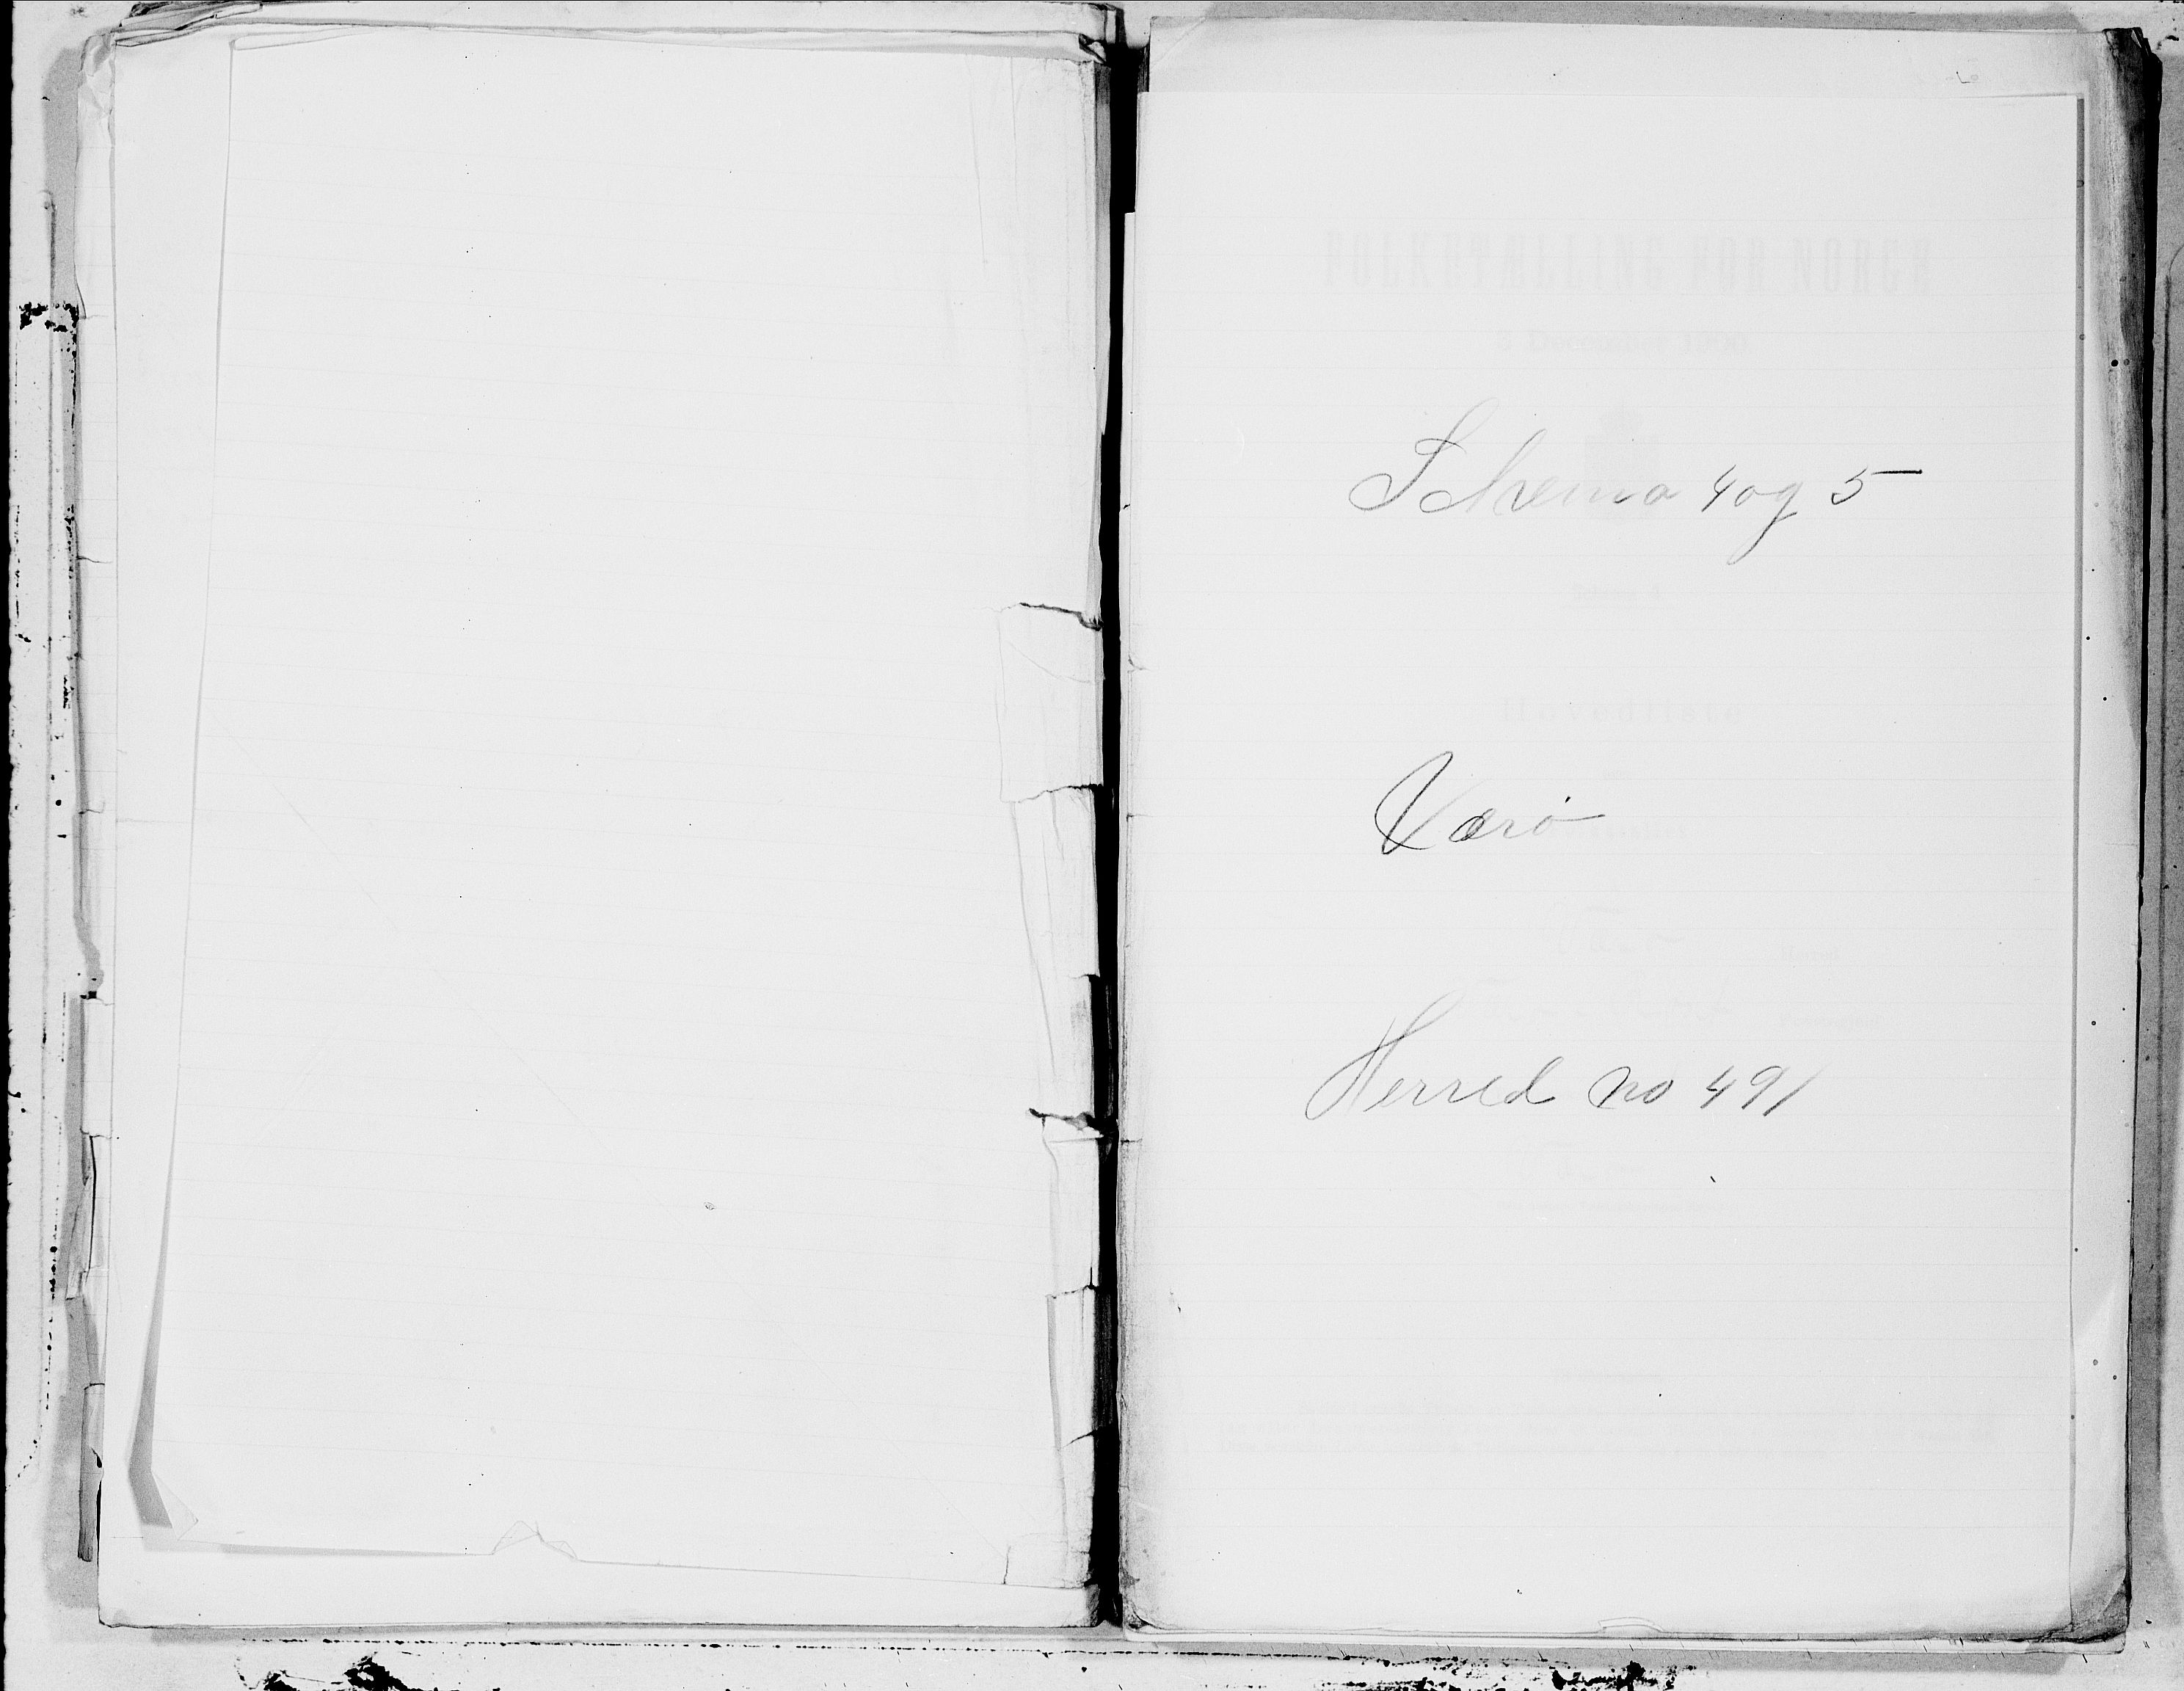 FOLKETÆLLING FOR NORGE
3 December 1900
Schema 4 og 5
Schema 4
Hovedliste
Værö
Herred no 491